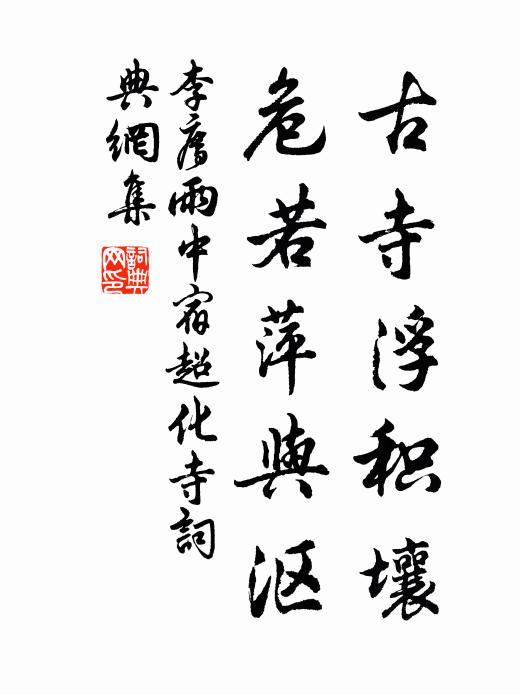 古寺浮积壤
危若萍與沤
李廌雨中宿超化寺詞
典網集
詞典
网印